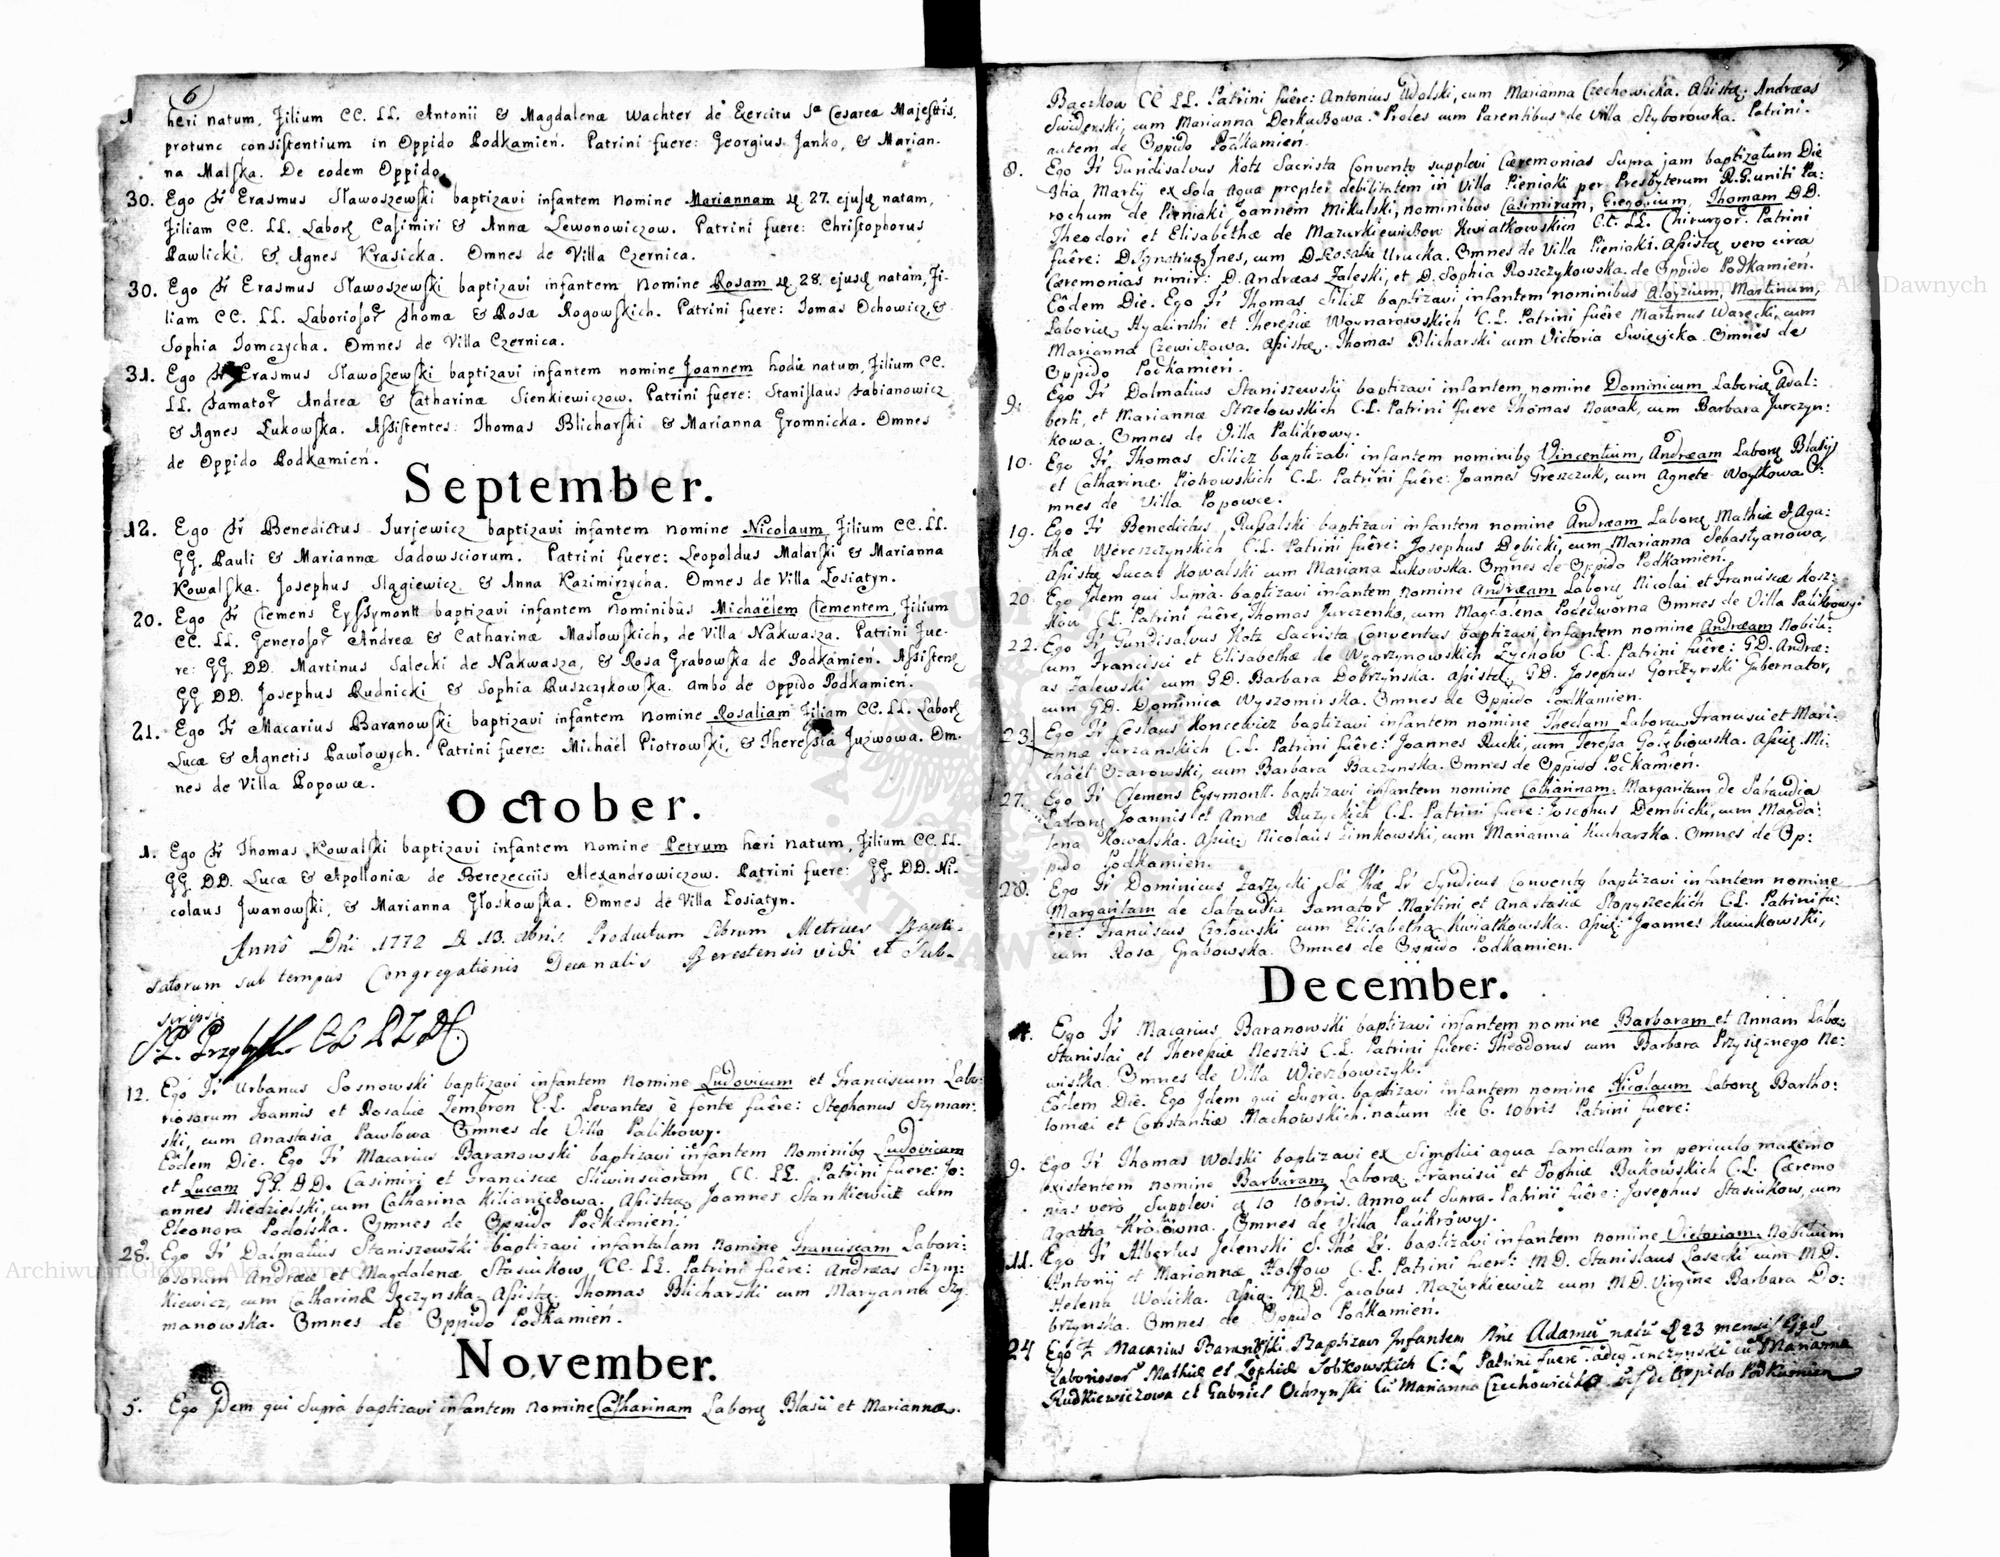 6
heri natum, Filium CC. LL. Antonii & Magdalenæ Wachter de Exercitu Sæ Cesareæ Majestatis,
protunc consistentium in Oppido Podkamień. Patrini fuere: Georgius Janko, & Marian-
na Malska. De eodem Oppido.
30. Ego Fr Erasmus Sławoszewski baptizavi infantem Nomine Mariannam 27. ejusq natam,
Filiam CC. LL. Labor Casimiri & Annæ Lewonowiczow. Patrini fuere: Christophorus
Pawlicki & Agnes Krasicka. Omnes de Villa Czernica.
30. Ego Fr Erasmus Sławoszewski baptizavi infantem Nomine Rosam 28. ejusq natam, Fi-
liam CC. LL. Laboriosor Thomæ & Rosæ Rogowskich. Patrini fuere: Tomas Ochowicz &
Sophia Tomczycha. Omnes de Villa Czernica.
31. Ego Fr Erasmus Sławoszewski baptizavi infantem nomine Joannem hodie natum, Filium CC.
LL. Famator Andreæ & Catharinæ Sienkiewiczow. Patrini fuere: Stanislaus Fabianowicz
& Agnes Łukowska. Assistentes: Thomas Blicharski & Marianna Gromnicka. Omnes
de Oppido Podkamień.
September.
12. Ego Fr Benedictus Jurjewicz baptizavi infantem nomine Nicolaum, Filium CC. LL.
GG. Pauli & Mariannæ Sadowsciorum. Patrini fuere: Leopoldus Malarski & Marianna
Kowalska. Josephus Slągiewicz & Anna Kazimirzycha. Omnes de Villa Łosiatyn.
20. Ego Fr Clemens Eyssymontt baptizavi infantem Nominibûs Michaëlem Clementem, Filium
CC. LL. Generosor Andreæ & Catharinæ Masłowskich, de Villa Nakwasza. Patrini Fue-
re: GG. DD. Martinus Salecki de Nakwasza, & Rosa Grabowska de Podkamień. Assistenq
GG DD. Josephus Rudnicki & Sophia Ruszczykowska. ambo de Oppido Podkamień.
21. Ego Fr Macarius Baranowski baptizavi infantem Nomine Rosaliam Filiam CC. LL. Labor
Lucæ & Agnetis Pawłowych. Patrini fuere: Michaël Piotrowski, & Theressia Juzwowa. Om-
nes de Villa Popowce.
October.
1. Ego Fr Thomas Kowalski baptizavi infantem nomine Petrum heri natum, Filium CC. LL.
GG. DD. Lucæ & Apolloniæ de Berezecciis Alexandrowiczow. Patrini fuere: GG. DD. Ni-
colaus Jwanowski, & Marianna Głoskowska. Omnes de Villa Łosiatyn.
Anno Dni 1772 D 13. Productum Librum Metrices Bapti-
satorum sub tempus Congregationis Decanalis Brestensis vidi et Sub-
scripsi
12. Ego Fr Urbanus Sosnowski baptizavi infantem nomine Ludovicum et Franciscum Labo-
riosorum Joannis et Rosaliæ Zembron C.L. Levantes è fonte fuêre: Stephanus Szyman-
ski, cum Anastasia Pawłowa Omnes de Villa Palikrowy.
Eôdem Die. Ego Fr Macarius Baranowski baptizavi infantem Nominibq Ludovicam
et Lucam GG. DD. Casimiri et Franciscæ Sliwinsciorum CC. LL. Patrini fuere: Jo:
annes Niedzielski, cum Catharina Kilianiczowa. Assistæ Joannes Stankiewicz cum
Eleonora Podolska. Omnes de Oppido Podkamień.
28. Ego Fr Dalmatius Staniszewski baptizavi infantulam nomine Franciscam Labori:
osorum Andreæ et Magdalenæ Stasiukow, CC. LL. Patrini fuêre: Andreas Szym:
kiewicz, cum Catharina Jęczynska. Assistæ. Thomas Blicharski cum Maryanna Szy-
manowska. Omnes de Oppido Podkamień.
November.
5. Ego Jdem qui Supra baptizavi infantem Nomine Catharinam Laborq Blasii et Mariannæ
Baczkow CC LL. Patrini fuêre: Antonius Wolski, cum Marianna Czechowicka. Assistæ. Andræas
Swiderski, cum Marianna Derkaczowa. Proles cum Parentibus de Villa Styborowka. Patrini
autem de Oppido Podkamień.
8. Ego Fr Gundisalvus Kotz Sacrista Conventq supplevi Cæremonias Supra jam baptizatum Die
Martij ex Sola Aqua propter debilitatem in Villa Pieniaki per Presbyterum R.G. uniti Pa:
rochum de Pieniaki Joannem Mikulski, nominibus Casimirum, Gregorium, Thomam DD.
Theodori et Elisabethæ de Mazurkiewiczow Kwiatkowskich C.C. LL. Chirurgor. Patrini
fuêre: D. Ignatius Jnes, cum D. Rosalia Urucka. Omnes de Villa Pieniaki. Assistæ vero circa
Cæremonias nimir: D. Andræas Zaleski, et D. Sophia Roszczykowska. de Oppido Podkamień.
Eôdem Die. Ego Fr Thomas Silicz baptizavi infantem nominibus Aloyzium, Martinum,
Laboriq Hyacinthi et Theresiæ Woynarowskich C.L. Patrini fuêre Martinus Warecki, cum
Marianna Czewiczowa. Assistæ. Thomas Blicharski cum Victoria Swięcicka. Omnes de
Oppido Podkamień.
9. Ego Fr Dalmatius Staniszewskij baptizavi infantem, nomine Dominicum Laboriq Adal:
berti, et Mariannæ Strzelowskich C.L. Patrini fuere Thomas Nowak, cum Barbara Jurczyn:
kowa. Omnes de Villa Palikrowy.
10. Ego Fr Thomas Silicz baptizavi infantem nominibq Vincentium, Andræam Laborq Blasij
et Catharinæ Piotrowskich C.L. Patrini fuêre: Joannes Greszczuk, cum Agnete Woytkowa O:
mnes de Villa Popowce.
19. Ego Fr Benedictus Russalski baptizavi infantem nomine Andræam Laborq Mathiæ et Aga:
thæ Wereszczynskich C.L. Patrini fuêre: Josephus Dębicki, cum Marianna Sebastyanowa,
Assistæ Lucas Kowalski cum Mariana Łukowska. Omnes de Oppido Podkamień.
20. Ego Jdem qui Supra. baptizavi infantem, nomine Andræam Laborq Nicolai et Franciscæ Kosz:
kow C.L. Patrini fuêre, Thomas Jurczenko, cum Magdalena Podedworna Omnes de Villa Palikrowy.
22. Ego Fr Gundisalvus Kotz Sacrista Conventus baptizavi infantem nomine Andræam Nobili:
um Francisci et Elisabethæ de Węgrzynowskich Zychow C.L. Patrini fuêre: GD. Andræ:
as Zalewski cum GD. Barbara Dobrzynska. Assistæ. GD. Josephus Gorczynski Gubernator,
cum GD. Dominica Wyszomirska. Omnes de Oppido Podkamien.
23. Ego Fr Ceslaus Koncewicz baptizavi infantem nomine Theclam Laborum Francisci et Mari:
annæ Jurzanskich C.L. Patrini fuêre: Joannes Rucki, cum Teressa Gołębiowska. Assisq Mi:
chaël Ozarowski, cum Barbara Baczynska. Omnes de Oppido Podkamień.
27. Ego Fr Clemens Eysymontt. baptizavi infantem nomine Catharinam. Margaritam de Sabaudia
Laborq Joannis et Annæ Ruzyckich C.L. Patrini fuere: Josephus Dembicki, cum Magda:
lena Kowalska. Assisq Nicolaus Zimkowski, cum Marianna Kucharzka. Omnes de Op:
pido Podkamien.
28. Ego Fr Dominicus Zarzycki, Sæ Thæ Lr Syndicus Conventq baptizavi infantem nomine
Margaritam de Sabaudia Famator Martini et Anastasiæ Stopyrzeckich C.L. Patrini fu:
êre: Franciscus Czołowski cum Elisabetha Kwiatkowska. Assisq: Joannes Kumkowski,
cum Rosa Grabowska. Omnes de Oppido Podkamien.
December.
4. Ego Fr Macarius Baranowski baptizavi infantem nomine Barbaram et Annam Labo:
Stanislai et Theresiæ Nesztis C.L. Patrini fuêre: Theodorus cum Barbara Przysięznego Ne:
wistka. Omnes de Villa Wierzbowczyk.
Eôdem Die. Ego Jdem qui Suprà baptizavi infantem nomine Nicolaum Laborq Bartho:
lomæi et Constantiæ Machowskich. natum die 6. 10bris Patrini fuere:
9. Ego Fr Thomas Wolski baptizavi ex Simplici aqua famellam in periculo maximo
existentem nomine Barbaram Laborq Francisci et Sophiæ Bukowskich C.L. Cæremo
nias verò Supplevi d 10 10bris. Anno ut Supra. Patrini fuêre: Josephus Stasiukow, cum
Agatha Krolowna. Omnes de Villa Palikrowy.
11. Ego Fr Albertus Jelenski S. Thæ Lr. baptizavi infantem nomine Victoriam. Nobilium
Antonij et Mariannæ C.L. Patrini fuere: M.D. Stanislaus Łasecki cum M.D.
Helena Wolicka. Assisq. M.D. Jacobus Mazurkiewicz cum M.D. Virgine Barbara Do:
brzynska. Omnes de Oppido Podkamień.
24 Ego Fr Macarius Baranowski Baptizavi Infantem Nne Adamu natu d 23 mensis
Laboriosor Mathiæ et Zophiæ Sobkowskich C: L Patrini fuere cu Marianna
Rudkiewiczowa et Gabriel Ochrynski Cu Marianna Czechowiecka de Oppido Podkamien
Archiwum Główne Akt Dawnych
Archiwum Główne Akt Dawnych